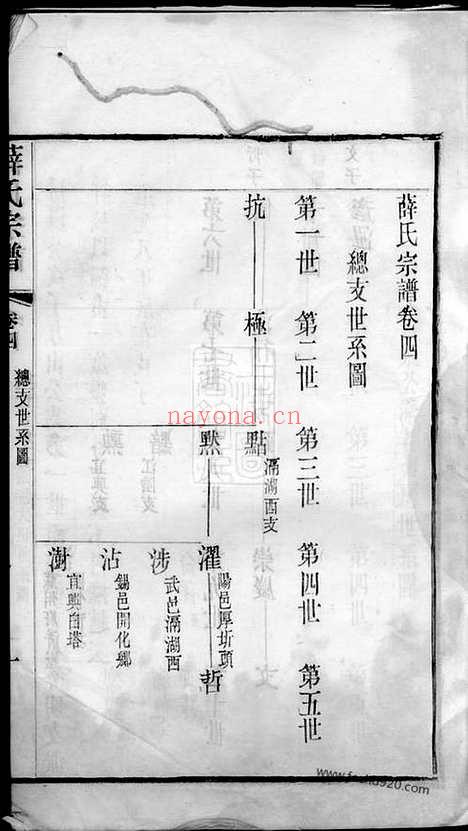 薛氏宗譜卷四
總支世系圖
第一世 第二世 第三世 第四世 第五世
抗 極 點
滆湖西支
默 濯 哲
陽邑厚圻頭
涉
武邑滆湖西
沾
錫邑開化鄉
澍
宜興白塔
薛氏宗譜
卷四
總支世系圖
一
nayona.cn